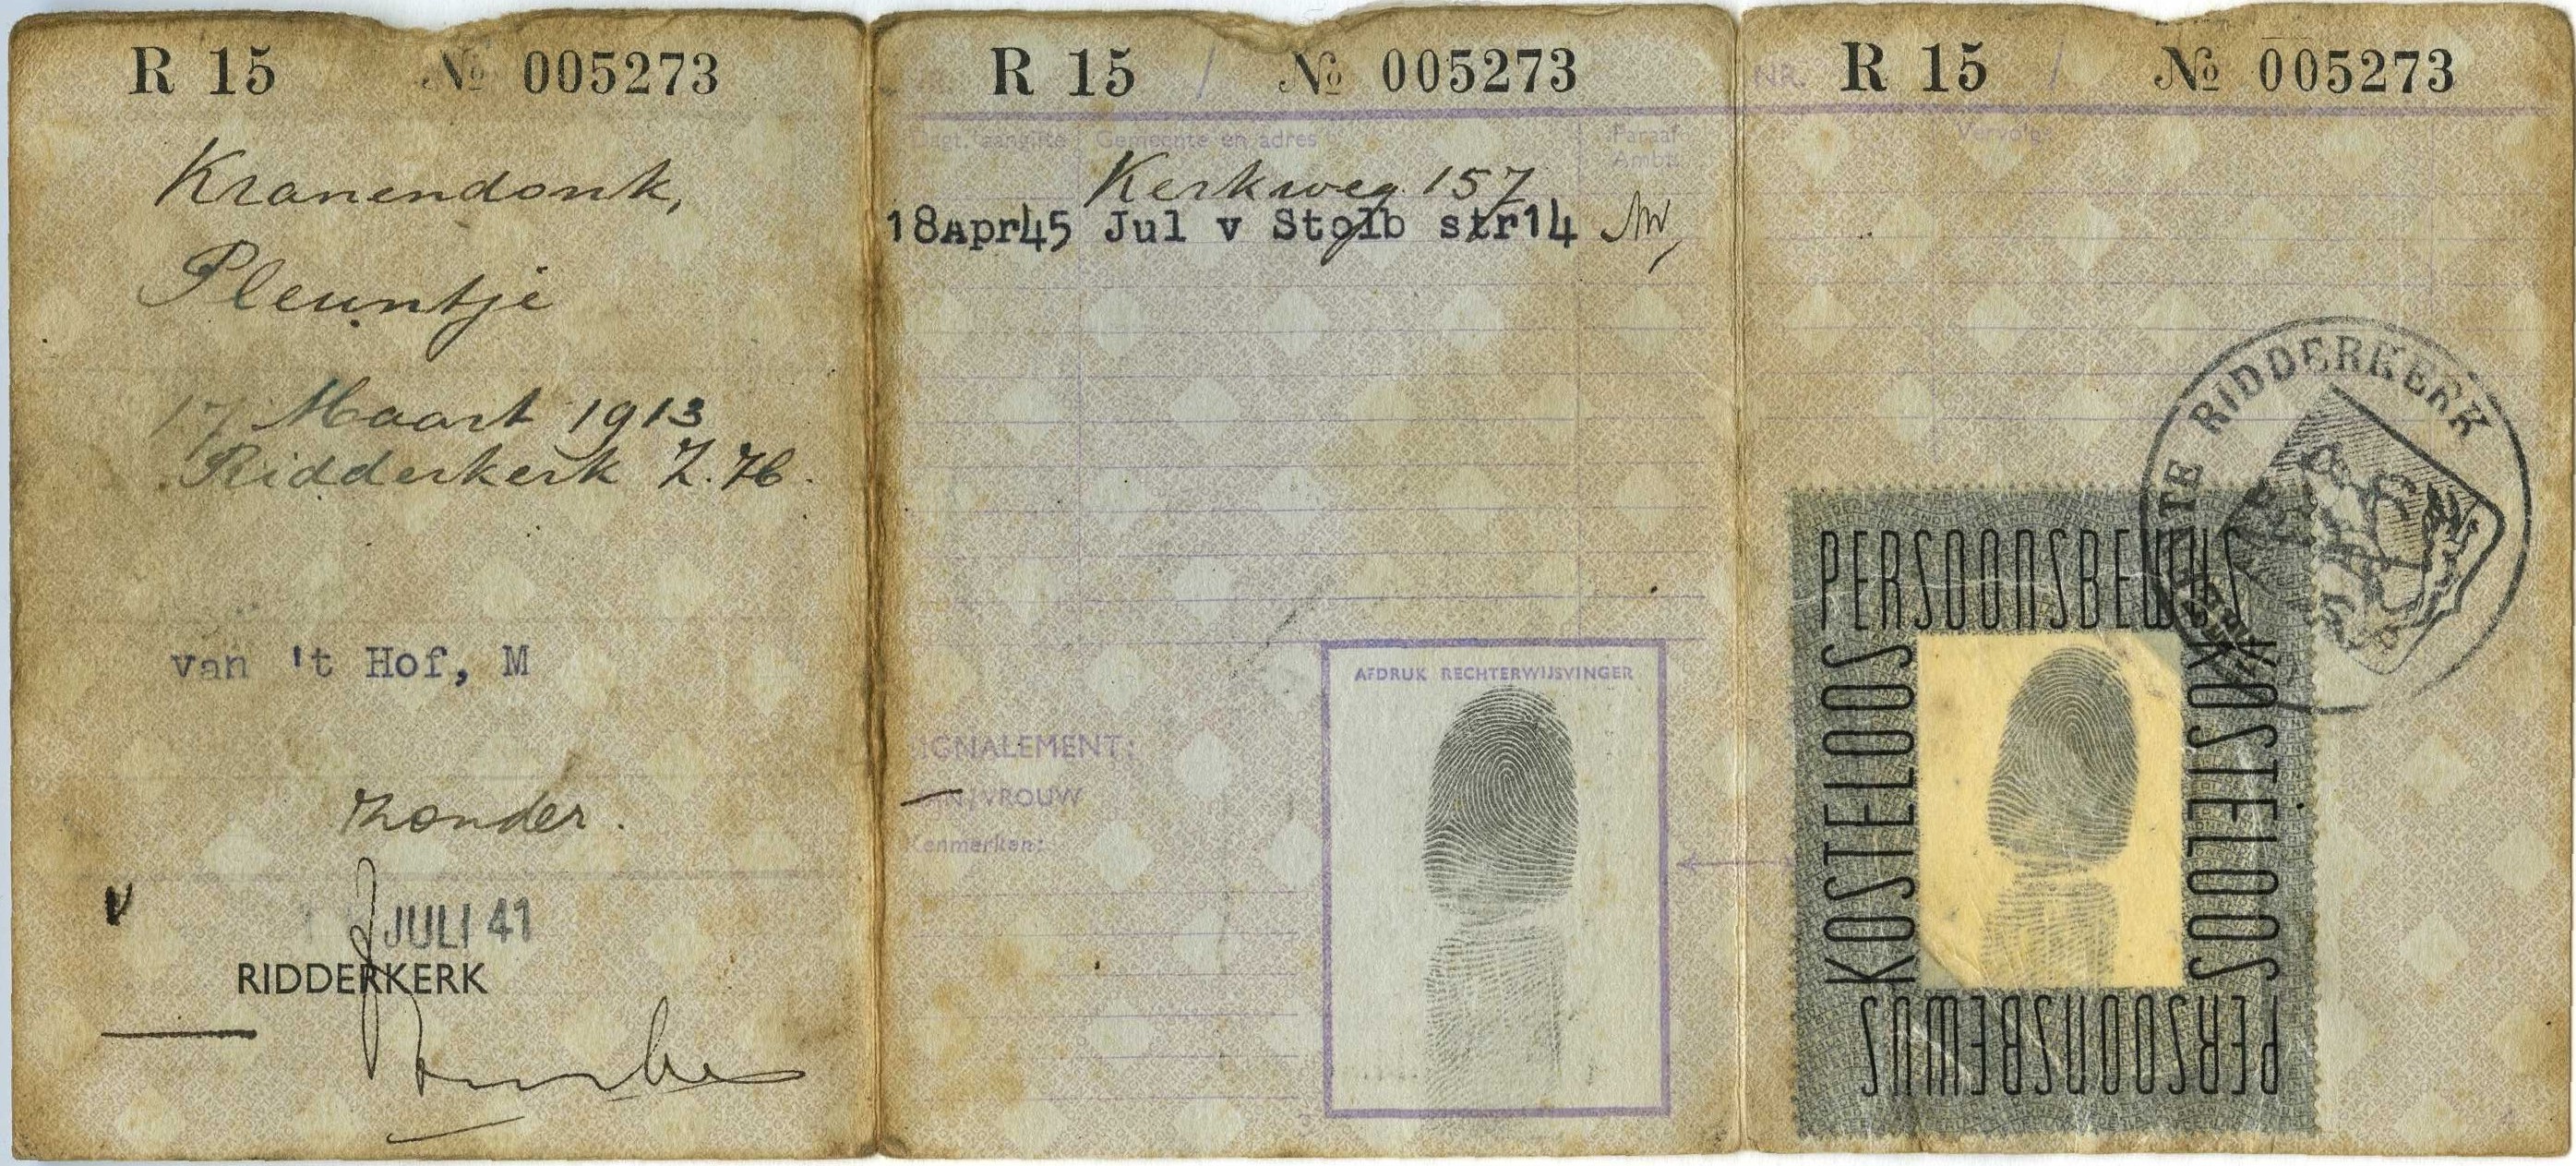 R 15 № 005273
Kranendonk,
Pleuntje
17 Maart 1913
Ridderkerk Z.H.
van 't Hof, M
zonder.
JULI 41
RIDDERKERK
R 15 № 005273
Dagt. aangifte Gemeente en adres Paraaf Ambt.
Kerkweg 157
18Apr45 Jul v Stolb str14
AFDRUK RECHTERWIJSVINGER
IGNALEMENT:
AN/VROUW
enmerken:
NR. R 15 № 005273
Vervolg:
TE RIDDERKERK
PERSOONSBEWIJS
KOSTELOOS
KOSTELOOS
PERSOONSBEWIJS